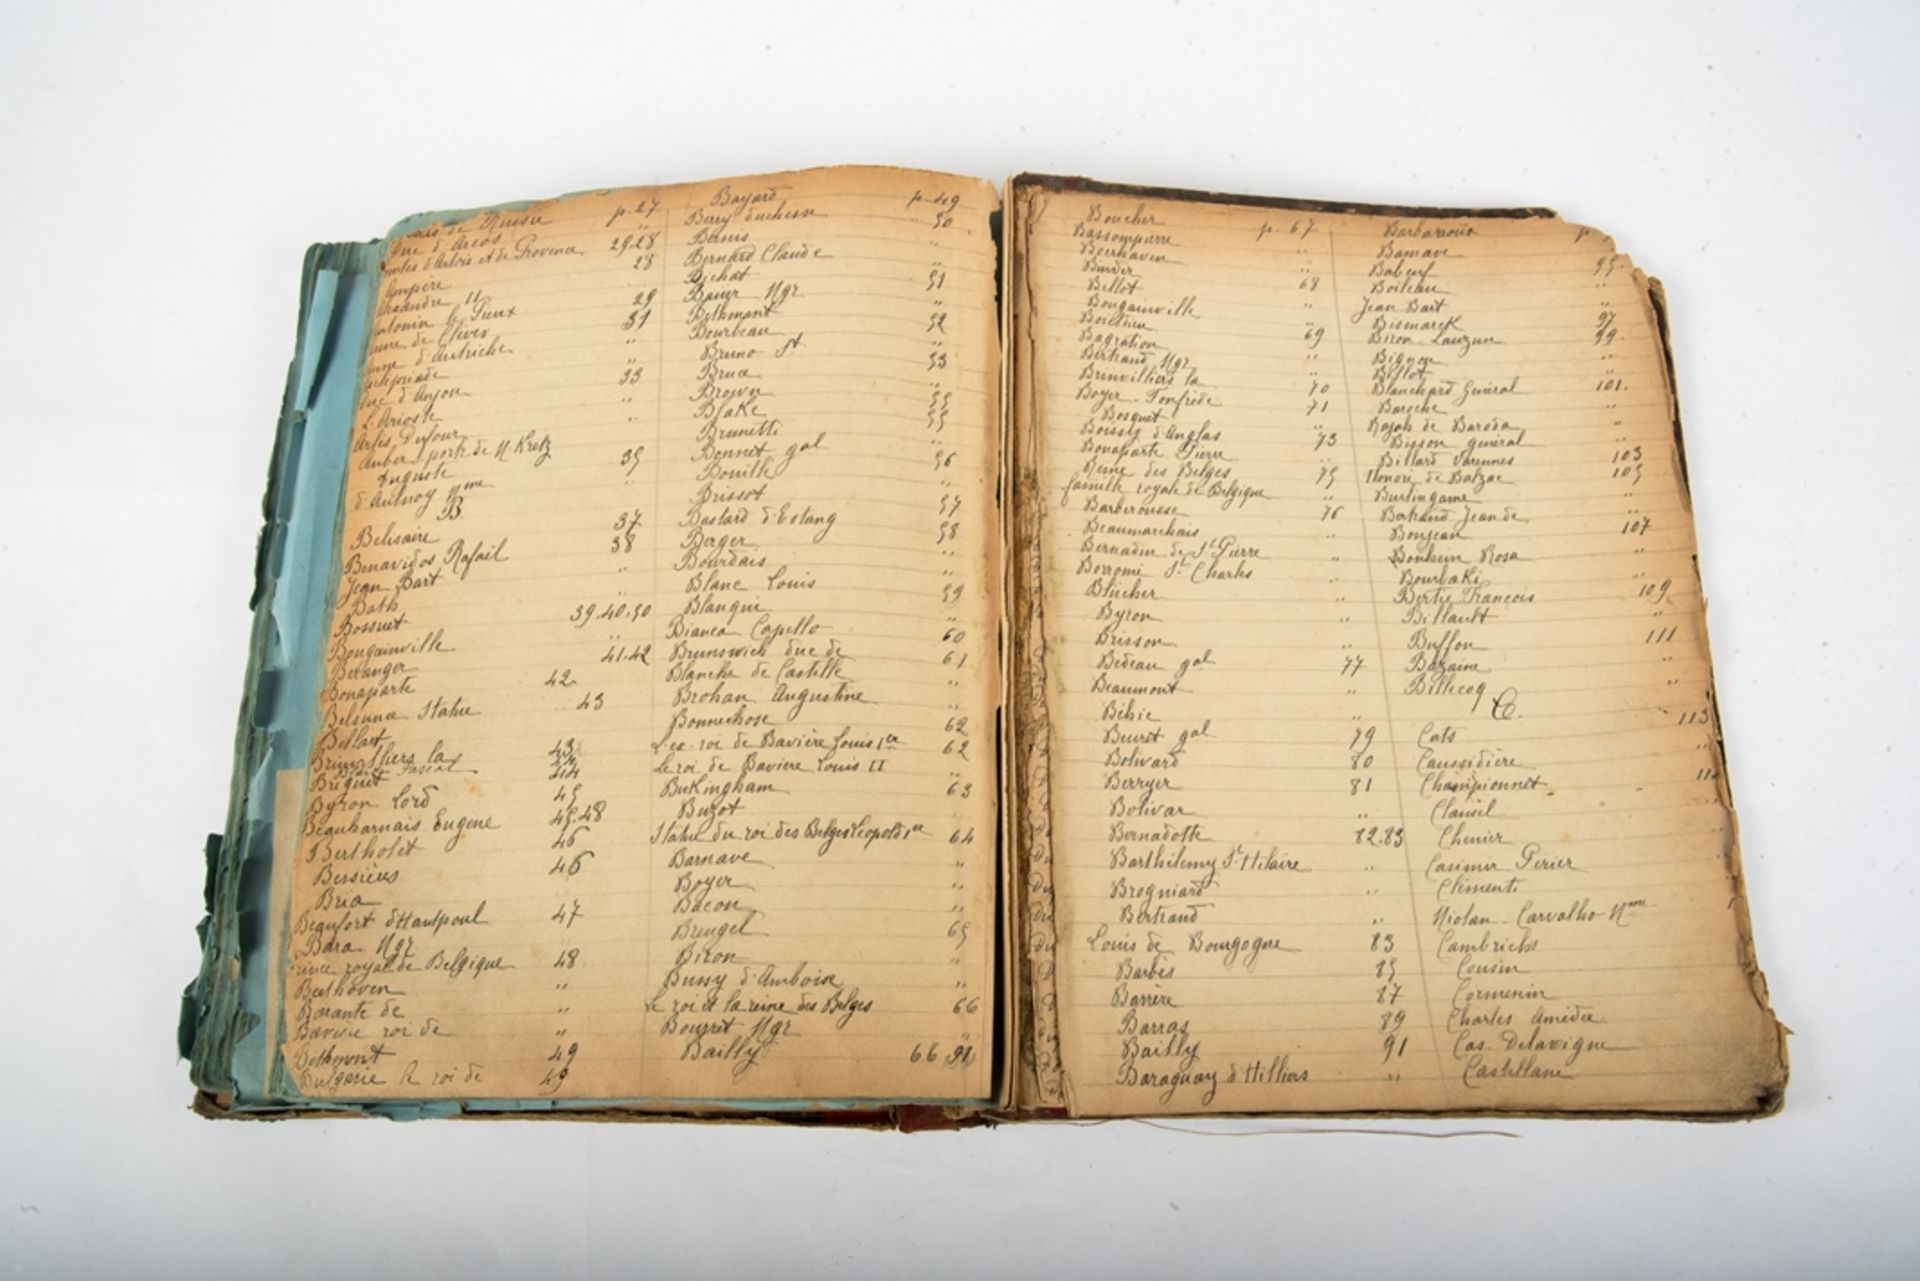 de Russie p. 27
Duc d'Arcos "
d'Artois et de Provence 29.28
Ampère 28
Alexandre II
Antonin le Pieux 29
Anne de Clèves 31
Anne d'Autriche "
"
Duc d'Anjou 33
L'Arioste "
Arlès Dufour "
Auber, porte de M. Kretz
Auguste 35
d'Aulnoy Mme "
B.
Belisaire 37
Benavidos Rafail 38
Jean Bart "
Bath "
Bossuet 39.40.50
Bougainville "
Beranger 41.42
Bonaparte 42
Belsunce Statue 43
Bellart
Brinvilliers la 43
Pascal 44
Breguet 44
Byron Lord 45
Beauharnais Eugene 45.48
Bertholet 46
Bessières 46
Bria
Beaufort d'Hautpoul 47
Bara Mgr
Prince royal de Belgique 48
Beethoven "
Barante de "
Baviere roi de "
Bethmont 49
Bulgarie le roi de 49
Bayard p. 49
Berry duchesse 50
Bernis "
Bernard Claude "
Bichat 51
Bauer Mgr "
Bethmont 52
Bourbeau "
Bruno St 53
Bruce "
Brown 55
Blake 55
Brunetti "
Bonnet gal 56
Bouillé "
Brissot 57
Bastard d'Estang 58
Berger "
Bourdais "
Blanc Louis 59
Blanqui "
Bianca Capello 60
Brunswick duc de 61
Blanche de Castille "
Brohan Augustine
Bonnechose 62
L'ex. roi de Bavière Louis 1er 62
Le roi de Baviere Louis II "
Bukingham 63
Buzot
Statue du roi des Belges Léopold 1er 64
Barnave "
Boyer "
Bacon "
Breugel 65
Biron "
Bussy d'Amboise "
Le roi et la reine des Belges 66
Bourret Mgr "
Bailly 66.91
Boucher p. 67
Bassompierre
Boerhaven "
Burder "
Bellot 68
Bougainville "
Boildieu "
Bagration 69
Bertrand Mgr "
Brinvilliers la "
Boyer-Fonfrède 70
Bosquet 71
Boissy d'Anglas "
Bonaparte Pierre 73
Reine des Belges "
famille royale de Belgique 75
Barberousse "
Beaumarchais 76
Bernadin de St Pierre "
Borromé St Charles "
Blücher "
Byron "
Brisson "
Bedeau gal 77
Beaumont "
Béhic "
Beuret gal 79
Bolivard 80
Berryer 81
Bolivar "
Bernadotte 82.83
Barthélemy St Hilaire "
Brogniard "
Bertrand "
Louis de Bourgogne 83
Barbès 85
Barrère 87
Barras 89
Bailly 91
Baraguay d'Hilliers "
Barbaroux p.
Barnave
Babeuf 95.
Boileau "
Jean Bart "
Bismarck 97
Biron-Lauzun 99.
Bignon "
Billot "
Blanchard Général 101.
Baroche "
Rajah de Baroda "
Bisson général "
Billard Varennes 103
Honoré de Balzac 105
Burlingame "
Bertrand Jean de "
Bonjean 107
Bonheur Rosa "
Bourbaki "
Bertin François 109
Billault "
Buffon 111
Bazaine "
Billecoq "
C.
113
Cats
Caussidière "
Championnet 11
Clausel
Chenier
Casimir Perier
Climenti
Miolan-Carvalho Mme
Cambriels
Cousin
Cormenin
Charles Amédée
Cas. Delavigne
Castellane